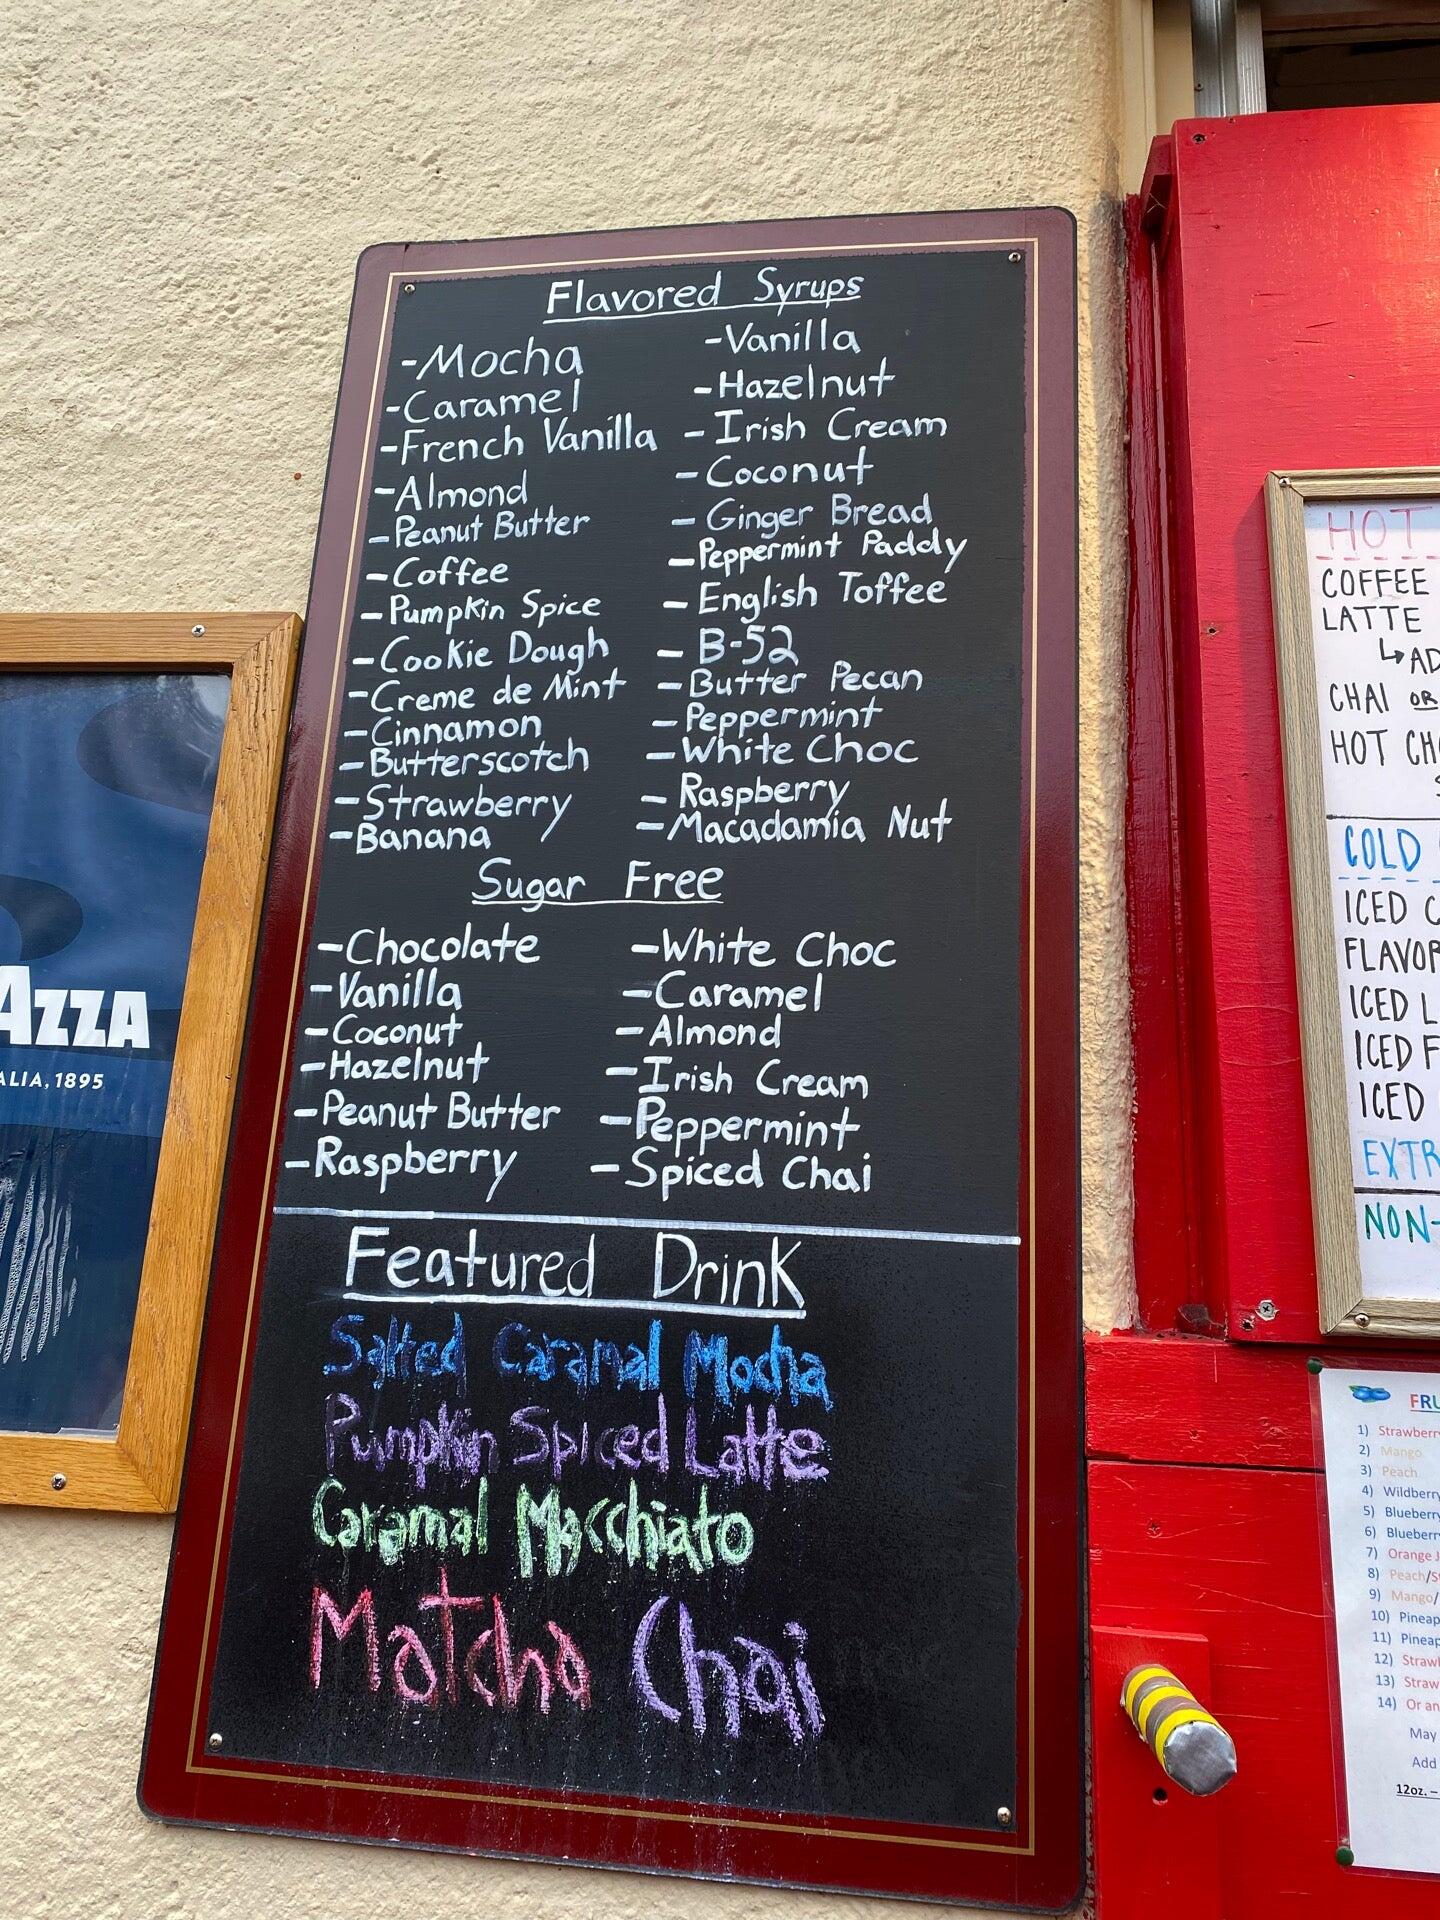 Flavored Syrups
-Mocha
-Caramel
-French Vanilla
-Almond
-Peanut Butter
-Coffee
-Pumpkin Spice
-Cookie Dough
-Creme de Mint
-Cinnamon
-Butterscotch
-Strawberry
-Banana
-Vanilla
-Hazelnut
-Irish Cream
-Coconut
-Ginger Bread
-Peppermint Paddy
-English Toffee
-B-52
-Butter Pecan
-Peppermint
-White Choc
-Raspberry
-Macadamia Nut
Sugar Free
-Chocolate
-Vanilla
-Coconut
-Hazelnut
-Peanut Butter
-Raspberry
-White Choc
-Caramel
-Almond
-Irish Cream
-Peppermint
-Spiced Chai
Featured Drink
Salted Caramal Mocha
Pumpkin Spiced Latte
Caramal Macchiato
Matcha Chai
AZZA
ALIA, 1895
HOT
COFFEE
LATTE
↳ AD
CHAI OR
HOT CHO
COLD
ICED C
FLAVOR
ICED L
ICED F
ICED
EXTR
NON-
FRU
1) Strawberry
2) Mango
3) Peach
4) Wildberry
5) Blueberry
6) Blueberry
7) Orange J
8) Peach/St
9) Mango/
10) Pineap
11) Pineap
12) Strawb
13) Straw
14) Or an
May
Add
12oz. –